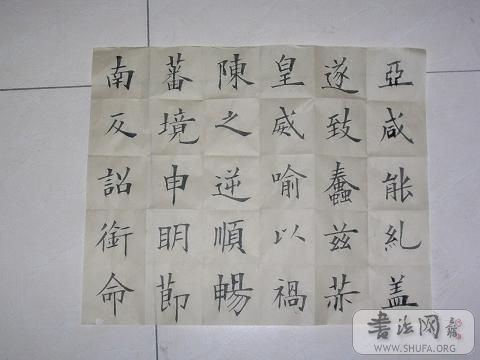 南反詔銜命
蕃境申眀莭
陳之逆順暢
皇威喻以禍
遂致蠢兹
亞咸能糺盖
書法网
WWW.SHUFA.ORG